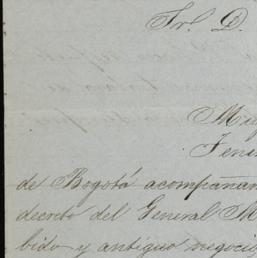 Sr. D.
Muy
Teni
de Bogotá acompañan
decreto del General M
bido y antiguo negocio